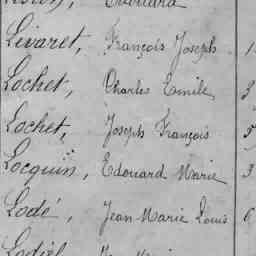 Edouard
Livaret, François Joseph
Lochet, Charles Emile
Lochet, Joseph François
Locquin, Edouard Marie
Lodé, Jean Marie Louis 6